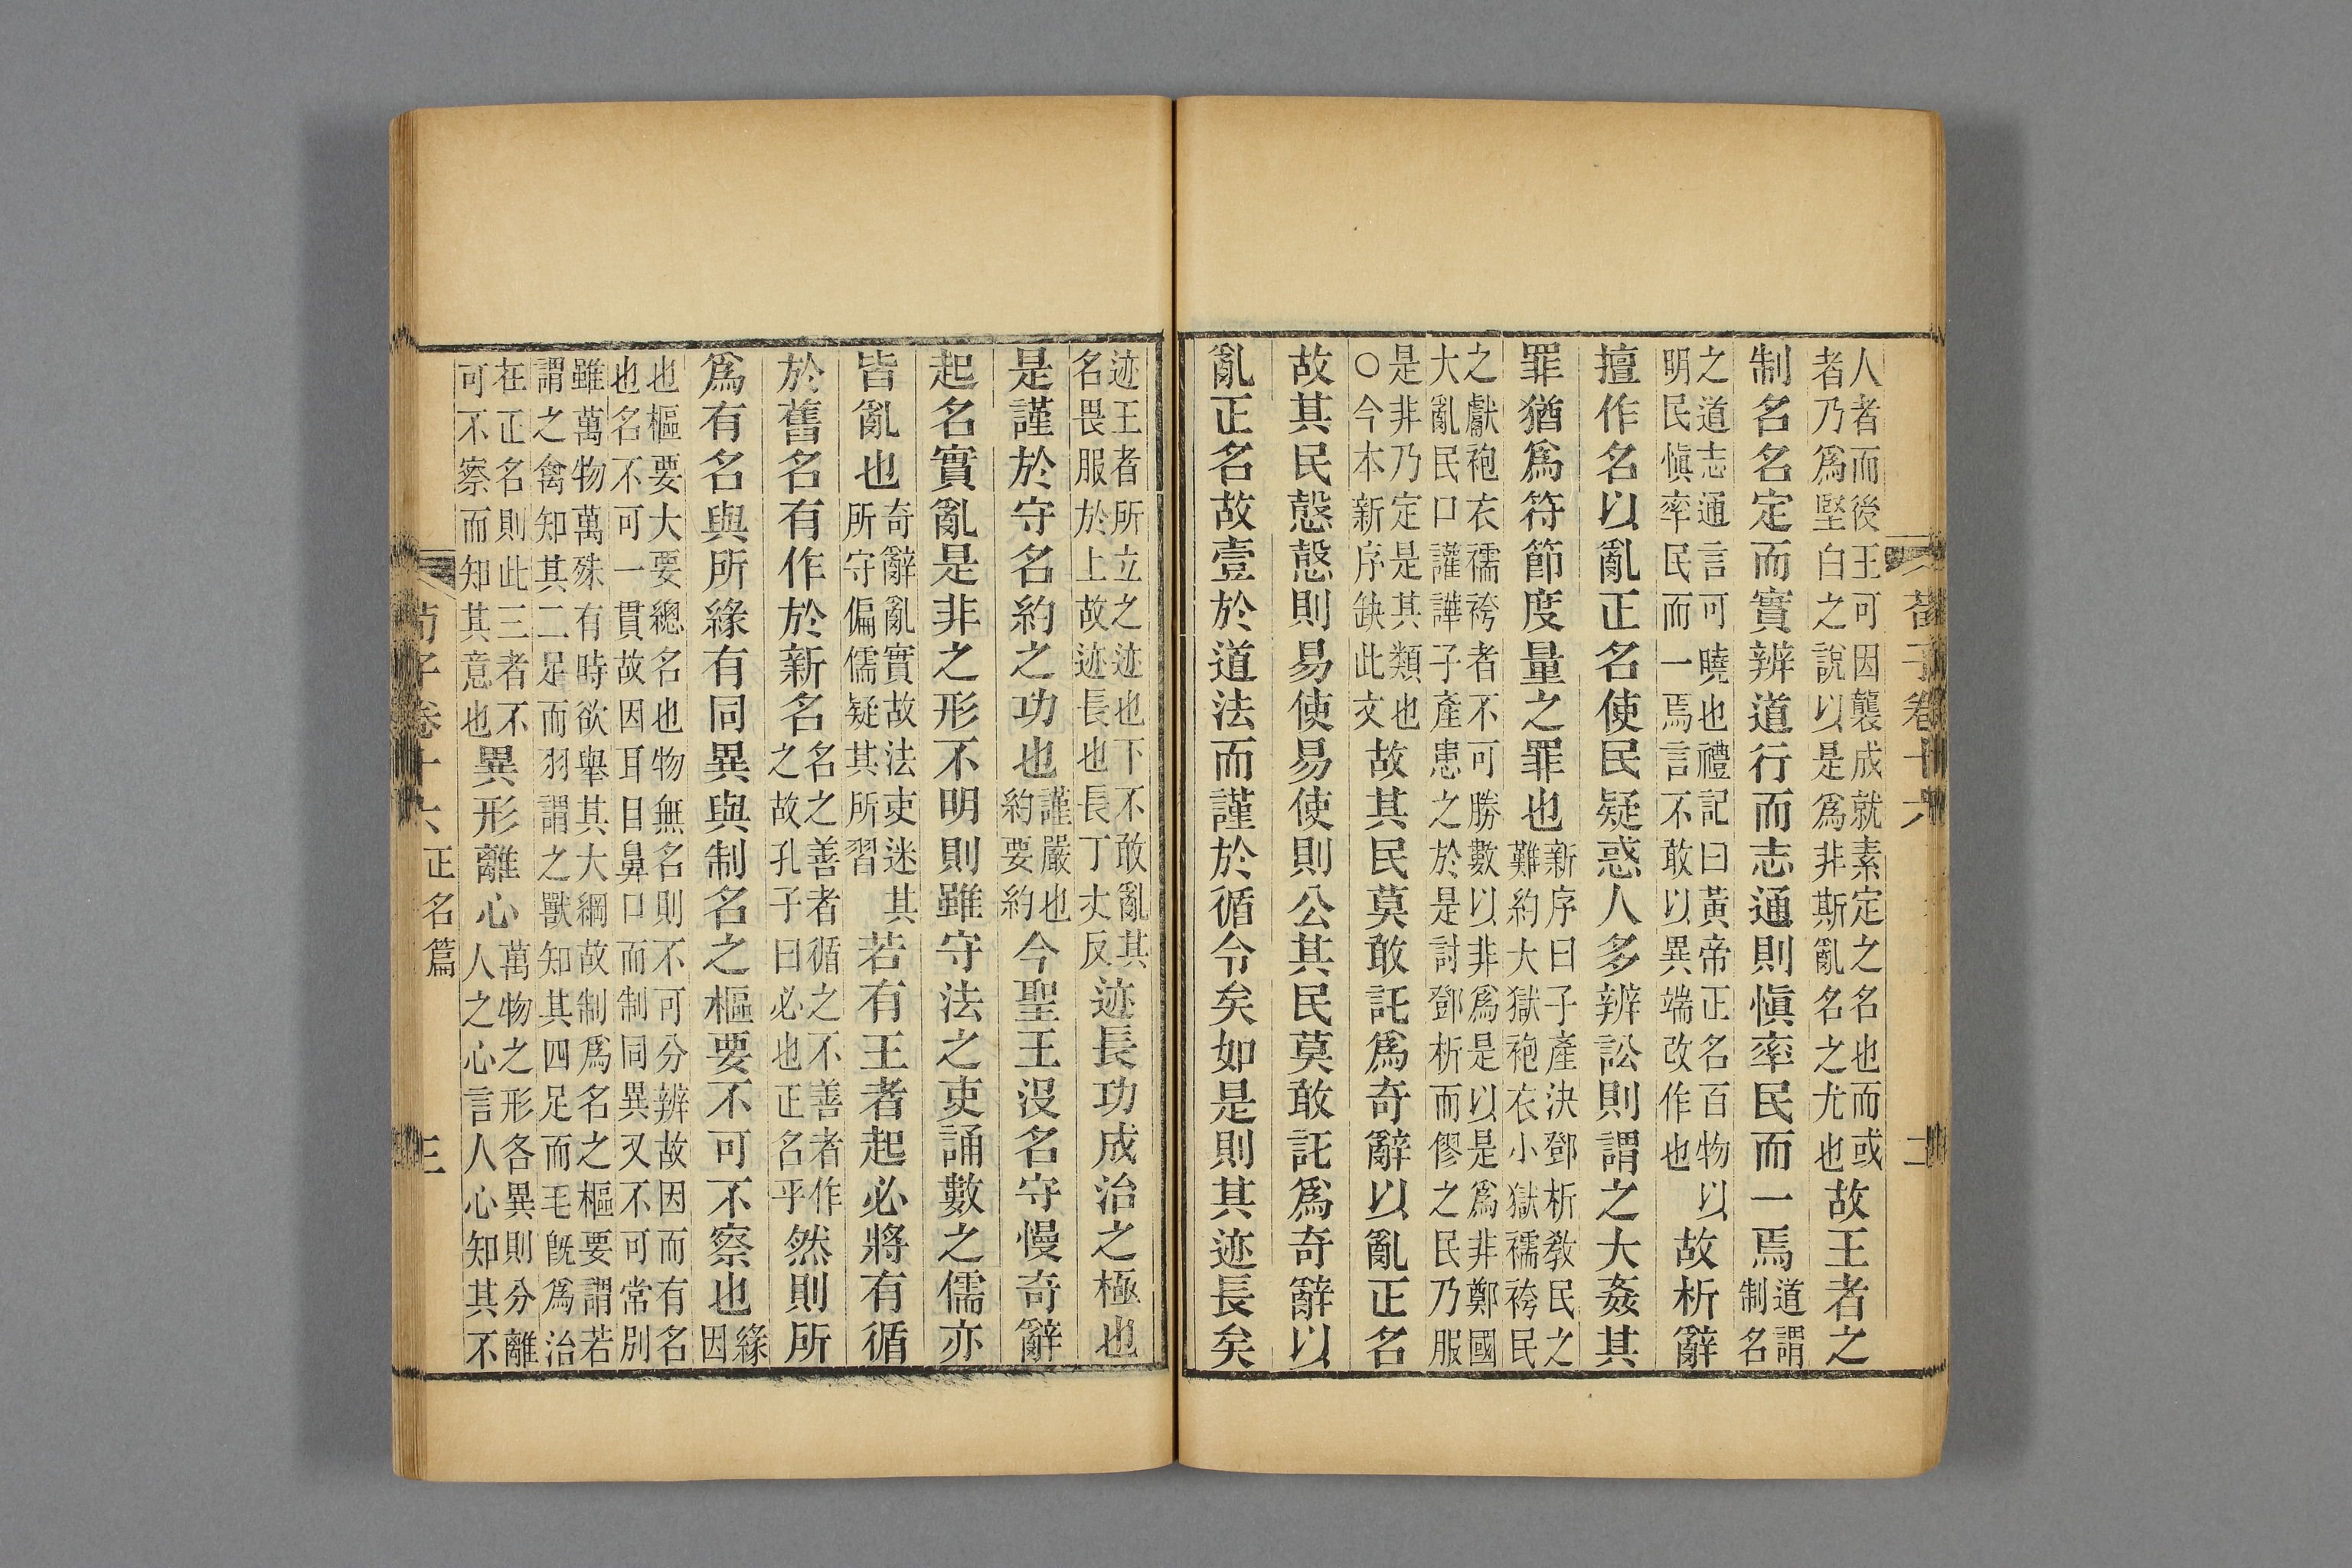 人者而後王可因襲成就素定之名也而或
者乃爲堅白之說以是爲非斯亂名之尤也
故王者之
制名名定而實辨道行而志通則愼率民而一焉
道謂
制名
之道志通言可曉也禮記曰黃帝正名百物以
明民愼率民而一焉言不敢以異端改作也
故析辭
擅作名以亂正名使民疑惑人多辨訟則謂之大姦其
罪猶爲符節度量之罪也
新序曰子產決鄧析敎民之
難約大獄袍衣小獄襦袴民
之獻袍衣襦袴者不可勝數以非爲是以是爲非鄭國
大亂民口讙譁子產患之於是討鄧析而僇之民乃服
是非乃定是其類也
○今本新序缺此文
故其民莫敢託爲奇辭以亂正名
故其民慤慤則易使易使則公其民莫敢託爲奇辭以
亂正名故壹於道法而謹於循令矣如是則其迹長矣
迹王者所立之迹也下不敢亂其
名畏服於上故迹長也長丁丈反
迹長功成治之極也
是謹於守名約之功也
謹嚴也
約要約
今聖王沒名守慢奇辭
起名實亂是非之形不明則雖守法之吏誦數之儒亦
皆亂也
奇辭亂實故法吏迷其
所守偏儒疑其所習
若有王者起必將有循
於舊名有作於新名
名之善者循之不善者作
之故孔子曰必也正名乎
然則所
爲有名與所緣有同異與制名之樞要不可不察也
緣
因
也樞要大要總名也物無名則不可分辨故因而有名
也名不可一貫故因耳目鼻口而制同異又不可常別
雖萬物萬殊有時欲舉其大綱故制爲名之樞要謂若
謂之禽知其二足而羽謂之獸知其四足而毛旣爲治
在正名則此三者不
可不察而知其意也
異形離心
萬物之形各異則分離
人之心言人心知其不
荀子卷十六
正名篇
三